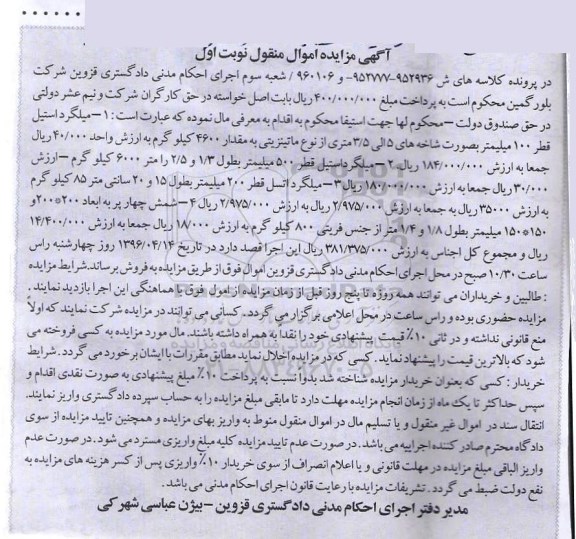 آگهی مزایده اموال منقول نوبت اول
در پرونده کلاسه های ش ۹۵۲۹۳۶-۹۵۲۷۷۷- و ۹۶۰۱۰۶ / شعبه سوم اجرای احکام مدنی دادگستری قزوین شرکت
بلور گمین محکوم است به پرداخت مبلغ ۴۰۰/۰۰۰/۰۰۰ ریال بابت اصل خواسته در حق کارگران شرکت و نیم عشر دولتی
در حق صندوق دولت - محکوم لها جهت استیفا محکوم به اقدام به معرفی مال نموده که عبارت است : ۱ - میلگرد استیل
قطر ۱۰۰ میلیمتر بصورت شاخه های ۵ الی ۳/۵ متری از نوع مانیتزیتی به مقدار ۴۶۰۰ کیلو گرم به ارزش واحد ۴۰/۰۰۰ ریال
جمعا به ارزش ۱۸۴/۰۰۰/۰۰۰ ریال ۲ - میلگرد استیل قطر ۵۰۰ میلیمتر بطول ۱/۳ و ۲/۵ را متر ۶۰۰۰ کیلو گرم - ارزش
۳۰/۰۰۰ ریال جمعا به ارزش ۱۸۰/۰۰۰/۰۰۰ ریال ۳ - میلگرد اتسل قطر ۲۰۰ میلیمتر بطول ۱۵ و ۲۰ سانتی متر ۸۵ کیلو گرم
به ارزش ۳۵۰۰۰ ریال به جمعا به ارزش ۲/۹۷۵/۰۰۰ ریال به ارزش ۲/۹۷۵/۰۰۰ ریال ۴ - شمش چهار پر به ابعاد ۲۰۰*۲۰۰ و
۱۵۰*۱۵۰ میلیمتر بطول ۱/۸ و ۱/۴ متر از جنس فرینی ۸۰۰ کیلو گرم به ارزش ۱۸/۰۰۰ ریال جمعا به ارزش ۱۴/۴۰۰/۰۰۰
ریال و مجموع کل اجناس به ارزش ۳۸۱/۳۷۵/۰۰۰ ریال این اجرا قصد دارد در تاریخ ۱۳۹۶/۰۴/۱۴ روز چهارشنبه راس
ساعت ۱۰/۳۰ صبح در محل اجرای احکام مدنی دادگستری قزوین اموال فوق از طریق مزایده به فروش برساند.شرایط مزایده
: طالبین و خریداران می توانند همه روزه تا پنج روز قبل از زمان مزایده از اموال فوق با هماهنگی این اجرا بازدید نمایند .
مزایده حضوری بوده و راس ساعت در محل اعلامی برگزار می گردد. کسانی می توانند در مزایده شرکت نمایند که اولاً
منع قانونی نداشته و در ثانی ۱۰٪ قیمت پیشنهادی خود را نقداً به همراه داشته باشند. مال مورد مزایده به کسی فروخته می
شود که بالاترین قیمت را پیشنهاد نماید . کسی که در مزایده اخلال نماید مطابق مقررات با ایشان برخورد می گردد . شرایط
خریدار : کسی که بعنوان خریدار مزایده شناخته شد بدواً نسبت به پرداخت ۱۰٪ مبلغ پیشنهادی به صورت نقدی اقدام و
سپس حداکثر تا یک ماه از زمان انجام مزایده مهلت دارد تا مابقی مبلغ مزایده را به حساب سپرده دادگستری واریز نمایند.
انتقال سند در اموال غیر منقول و یا تسلیم مال در اموال منقول منوط به واریز بهای مزایده و همچنین تایید مزایده از سوی
دادگاه محترم صادر کننده اجراییه می باشد . در صورت عدم تایید مزایده کلیه مبلغ واریزی مسترد می شود . در صورت عدم
واریز الباقی مبلغ مزایده در مهلت قانونی و یا اعلام انصراف از سوی خریدار ۱۰٪ واریزی پس از کسر هزینه های مزایده به
نفع دولت ضبط می گردد . تشریفات مزایده با رعایت قانون اجرای احکام مدنی می باشد.
مدیر دفتر اجرای احکام مدنی دادگستری قزوین - بیژن عباسی شهرکی